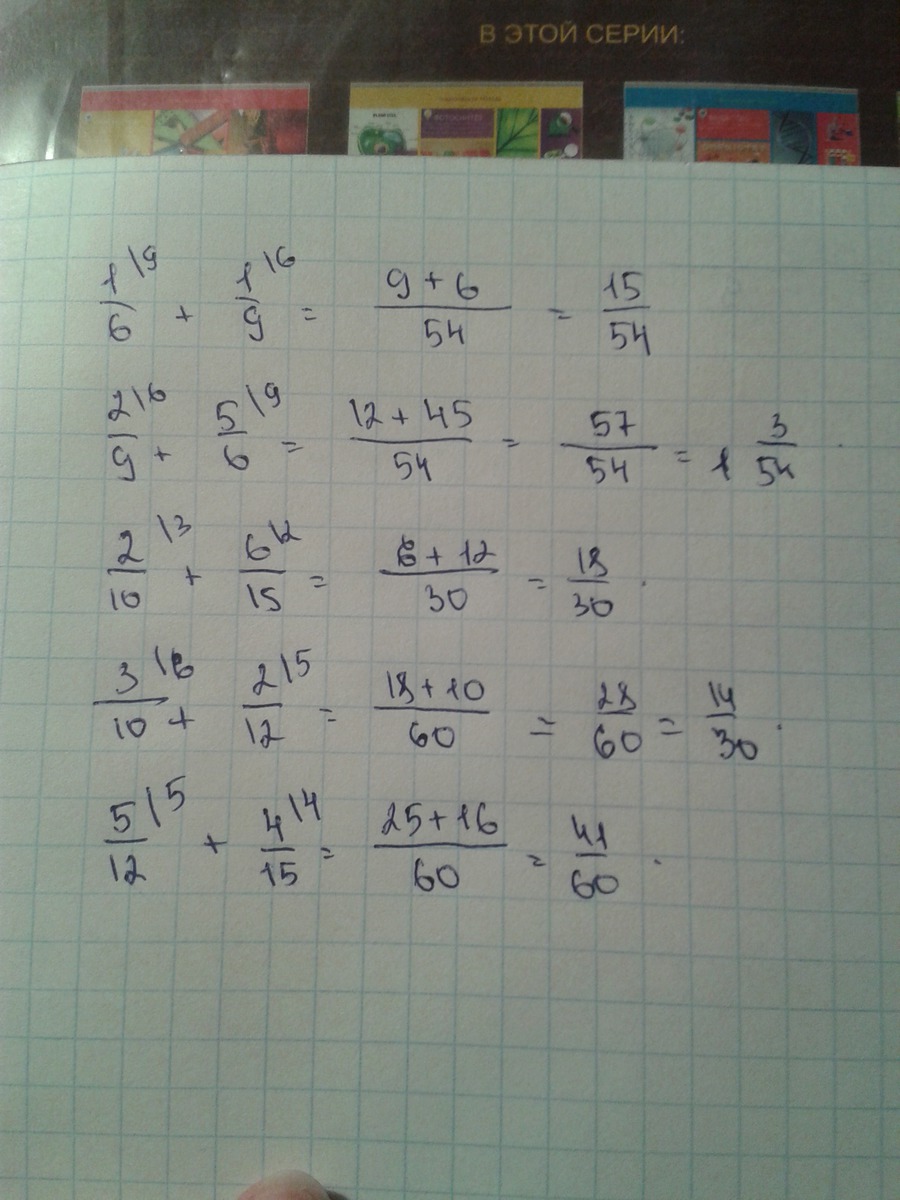 В ЭТОЙ СЕРИИ:
1\9/6 + 1\6/9 = 9 + 6/54 = 15/54
2\6/9 + 5\9/6 = 12 + 45/54 = 57/54 = 1 3/54 .
2\3/10 + 6\2/15 = 6 + 12/30 = 18/30 .
3\6/10 + 2\5/12 = 18 + 10/60 = 28/60 = 14/30 .
5\5/12 + 4\4/15 = 25 + 16/60 = 41/60 .